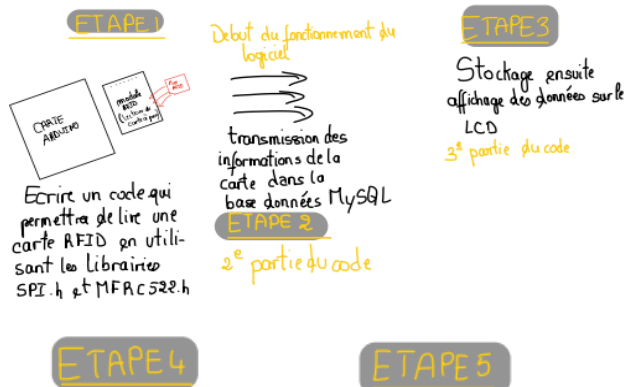 ETAPE 1
CARTE
ARDUINO
module
RFID
(lecteur de
carte à puce)
Ecrire un code qui
permettra de lire une
carte RFID en utili-
sant les Librairies
SPI.h et MFRC522.h
Debut du fonctionnement du
logiciel
transmission des
informations de la
carte dans la
base données MySQL
ETAPE 2
2e partie du code
ETAPE 3
Stockage ensuite
affichage des données sur le
LCD
3e partie du code
ETAPE 4
ETAPE 5